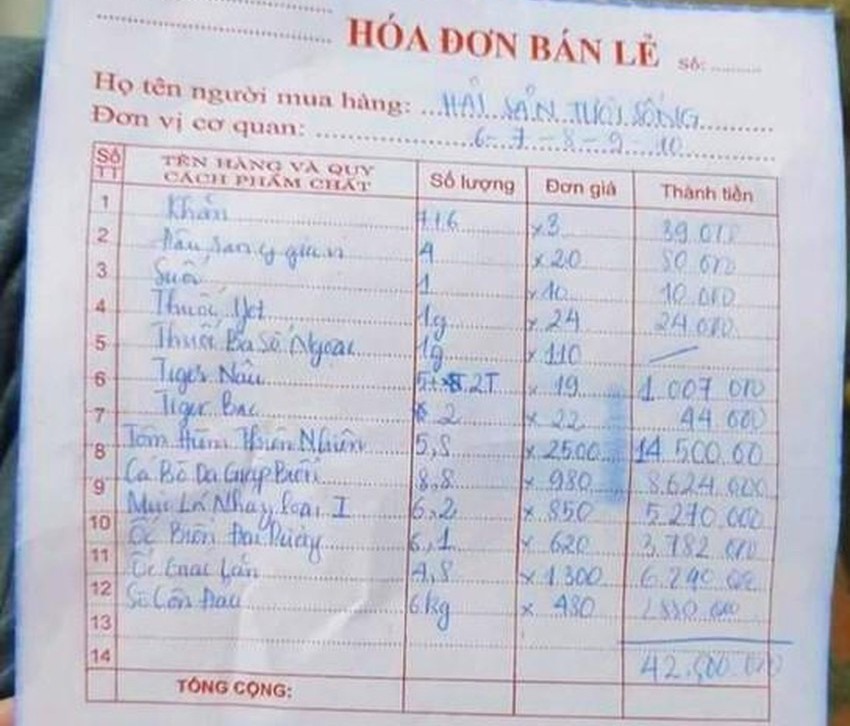 HÓA ĐƠN BÁN LẺ Số: ..........
Họ tên người mua hàng: HẢI SẢN TƯƠI SỐNG
Đơn vị cơ quan: 6-7-8-9-10
Số TT TÊN HÀNG VÀ QUY CÁCH PHẨM CHẤT Số lượng Đơn giá Thành tiền
1 Khăn x3 39.000
2 4 x20 80 000
3 Suối 1 x10 10.000
4 Thuốc Jet 1g x 24 24.000
5 Thuốc Ba Số Ngoại 1g x 110
6 Tiger Nâu 2T x 19 1 007 000
7 Tiger Bạc 2 x 22 44 000
8 Tôm Hùm Thiên Nhiên 5,8 x 2500 14 500.00
9 Cá Bò Da Giáp Biển 8,8 x 980 8.624.000
10 Mực Lá Nháy loại I 6,2 x 850 5.270.000
11 Ốc Biển 6,1 x 620 3.782 000
12 Ốc 4,8 x 1300 6.240
13 6kg x 480 000
14 42.500.000
TỔNG CỘNG: